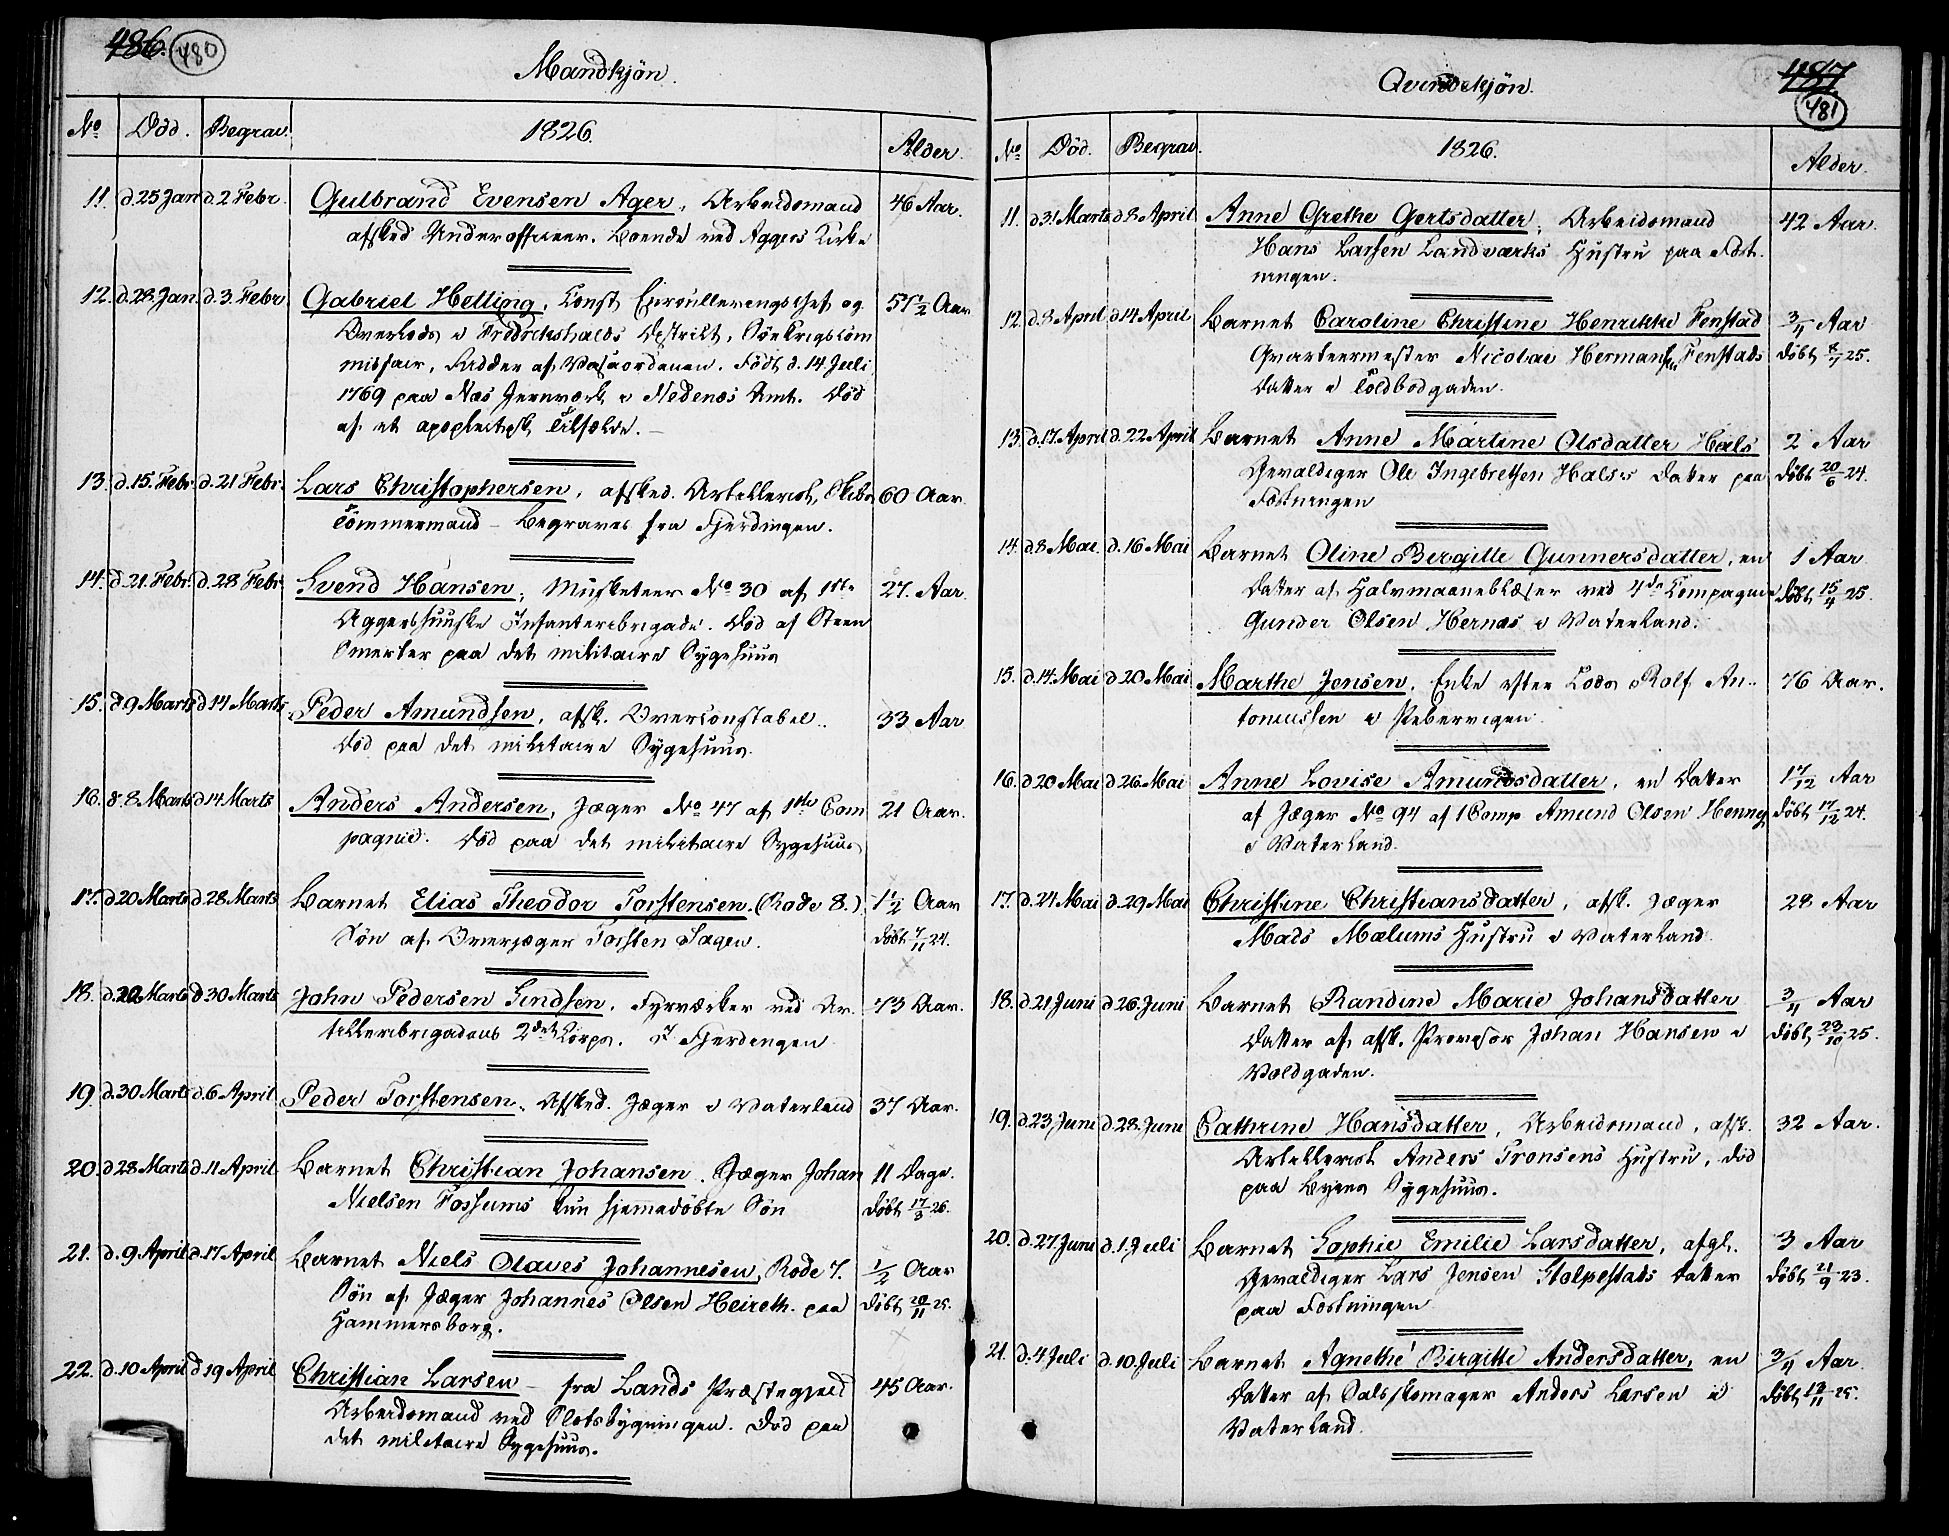 486. 480
Mandkjön.
No Död. Begrav. 1826. Alder.
11. d. 25 Jan d. 2 Febr. Gulbrand Evensen Ager, Arbeidsmand 46 Aar.
afsked Underofficeer. Boende ved Aggers Kirke
12. d. 28. Jan. d. 3. Febr. Gabriel Helling, Const. Enroulleringschef og 57½ Aar
Overlods i Fredrikshalds Distrikt, Söekrigscom
missair, Ridder af Vasaordenen. Födt d. 14 Juli
1769 paa Næs Jernværk i Nedenæs Amt. Död
af et apoplectisk Tilfælde.
13. d. 15. Febr. d. 21 Febr. Lars Christophersen, afsked. Artillerist, Skibs 60 Aar.
Tömmermand - Begraves fra Fjerdingen.
14. d. 21. Febr. d. 28 Febr. Svend Hansen, Musketeer No 30 af 1ste 27. Aar.
Aggershuuske Infanteribrigade. Död af Steen
Smerter paa det militaire Sygehuus
15. d. 9 Marts d 14 Marts Peder Amundsen, afsk. Overconstabel. 33 Aar
Död paa det militaire Sygehuus.
16. d. 8. Marts d 14 Marts Anders Andersen, Jæger No 47 af 1ste Com 21 Aar.
pagnie. Död paa det militaire Sygehuus
17. d. 20 Marts d. 28 Marts Barnet Elias Theodor Torstensen. (Rode 8.) 1½ Aar
Sön af Overjæger Torsten Sagen. döbt 7/11 24.
18. d. 22 Marts d 30 Marts John Pedersen Sindsen, Fyrværker ved Ar- 43 Aar.
tilleribrigadens 2det Corps. I Fjerdingen
19. d. 30 Marts d. 6 April Peder Torstensen, Afsked. Jæger i Vaterland 37 Aar.
20. d 28 Marts d. 11 April Barnet Christian Johansen. Jæger Johan 11 Dage.
Nielsen Fossums kun hjemmedöbte Sön Döbt 17/3 26.
21. d. 9 April d. 17 April Barnet Niels Olaves Johannesen, Rode 7. ½ Aar
Sön af Jæger Johannes Olsen Heireth. paa Döbt 20/11 25.
Hammersborg.
22. d. 10 April d 19 April Christian Larsen - fra Lands Præstegjeld 45 Aar.
Arbeidsmand ved Slotsbygningen. Död paa
det militaire Sygehuus.
487 481
Qvindekjön.
No Död. Begrav. 1826. Alder.
11. d. 31 Marts d. 8 April Anne Grethe Gertsdatter, Arbeidsmand 42 Aar.
Hans Larsen Landværks Hustru paa Fæst-
ningen.
12. d. 8 April d 14 April Barnet Caroline Christine Henrikke Fenstad ¾ Aar
Qvarteermester Nicolai Hermansen Fenstads döbt 25.
Datter i Toldbodgaden.
13. d. 17. April d. 22 April Barnet Anne Martine Olsdatter Hals 2 Aar
Gevaldiger Ole Ingebretsen Halses Datter paa döbt 20/6 24.
Fæstningen
14. d. 8 Mai. d. 16 Mai Barnet Oline Birgitte Gunnersdatter, en 1 Aar
Datter af Halvmaaneblæser ved 4de Compagnie döbt 15/4 25.
Gunder Olsen Hernæs i Vaterland.
15. d. 14. Mai d 20 Mai. Marthe Jensen. Enke efter Lods Rolf An- 76 Aar.
toniussen i Pebervigen
16. d 20 Mai d 26. Mai Anne Lovise Amundsdatter, en Datter 1 7/12 Aar
af Jæger No 94 af 1 Comp Amund Olsen Henneg döbt 17/12 24.
i Vaterland.
17. d. 24 Mai d. 29 Mai Christine Christiansdatter, afsk. Jæger 28 Aar
Mads Mælums Hustru i Vaterland.
18. d. 21 Juni d 26. Juni Barnet Randine Marie Johansdatter ¾ Aar
Datter af afsk. Provisor Johan Hansen i döbt 23/10 25.
Voldgaden.
19. d. 23 Juni d. 28. Juni Cathrine Hansdatter, Arbeidsmand, afsk. 32 Aar.
Artillerist Anders Tronsens Hustru, död
paa Byens Sygehuus.
20. d. 27 Juni d. 1. Juli Barnet Sophie Emilie Larsdatter, afgl. 3 Aar
Gevaldiger Lars Jensen Stolpestads Datter döbt 21/9 23.
paa Fæstningen
21. d. 4 Juli d. 10. Juli Barnet Agnethe Birgitte Andersdatter, en ¾ Aar.
Datter af Salskomager Anders Larsen i döbt 13/11 25.
Vaterland.